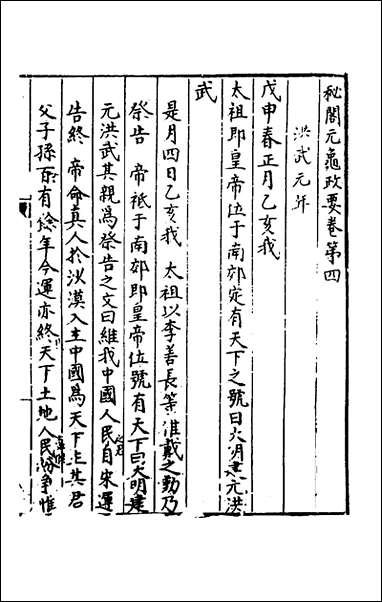 秘閣元龜政要卷第四
洪武元年
戊申春正月乙亥我
太祖即皇帝位于南郊定有天下之號曰大明建元洪
武
是月四日乙亥我　太祖以李善長等推戴之勤乃
祭告　帝祗于南郊即皇帝位號有天下曰大明建
元洪武其親爲祭告之文曰維我中國人民之君自宋運
告終　帝命真人於沙漠入主中國爲天下主其君
父子孫百有餘年今運亦終天下土地人民紛爭惟